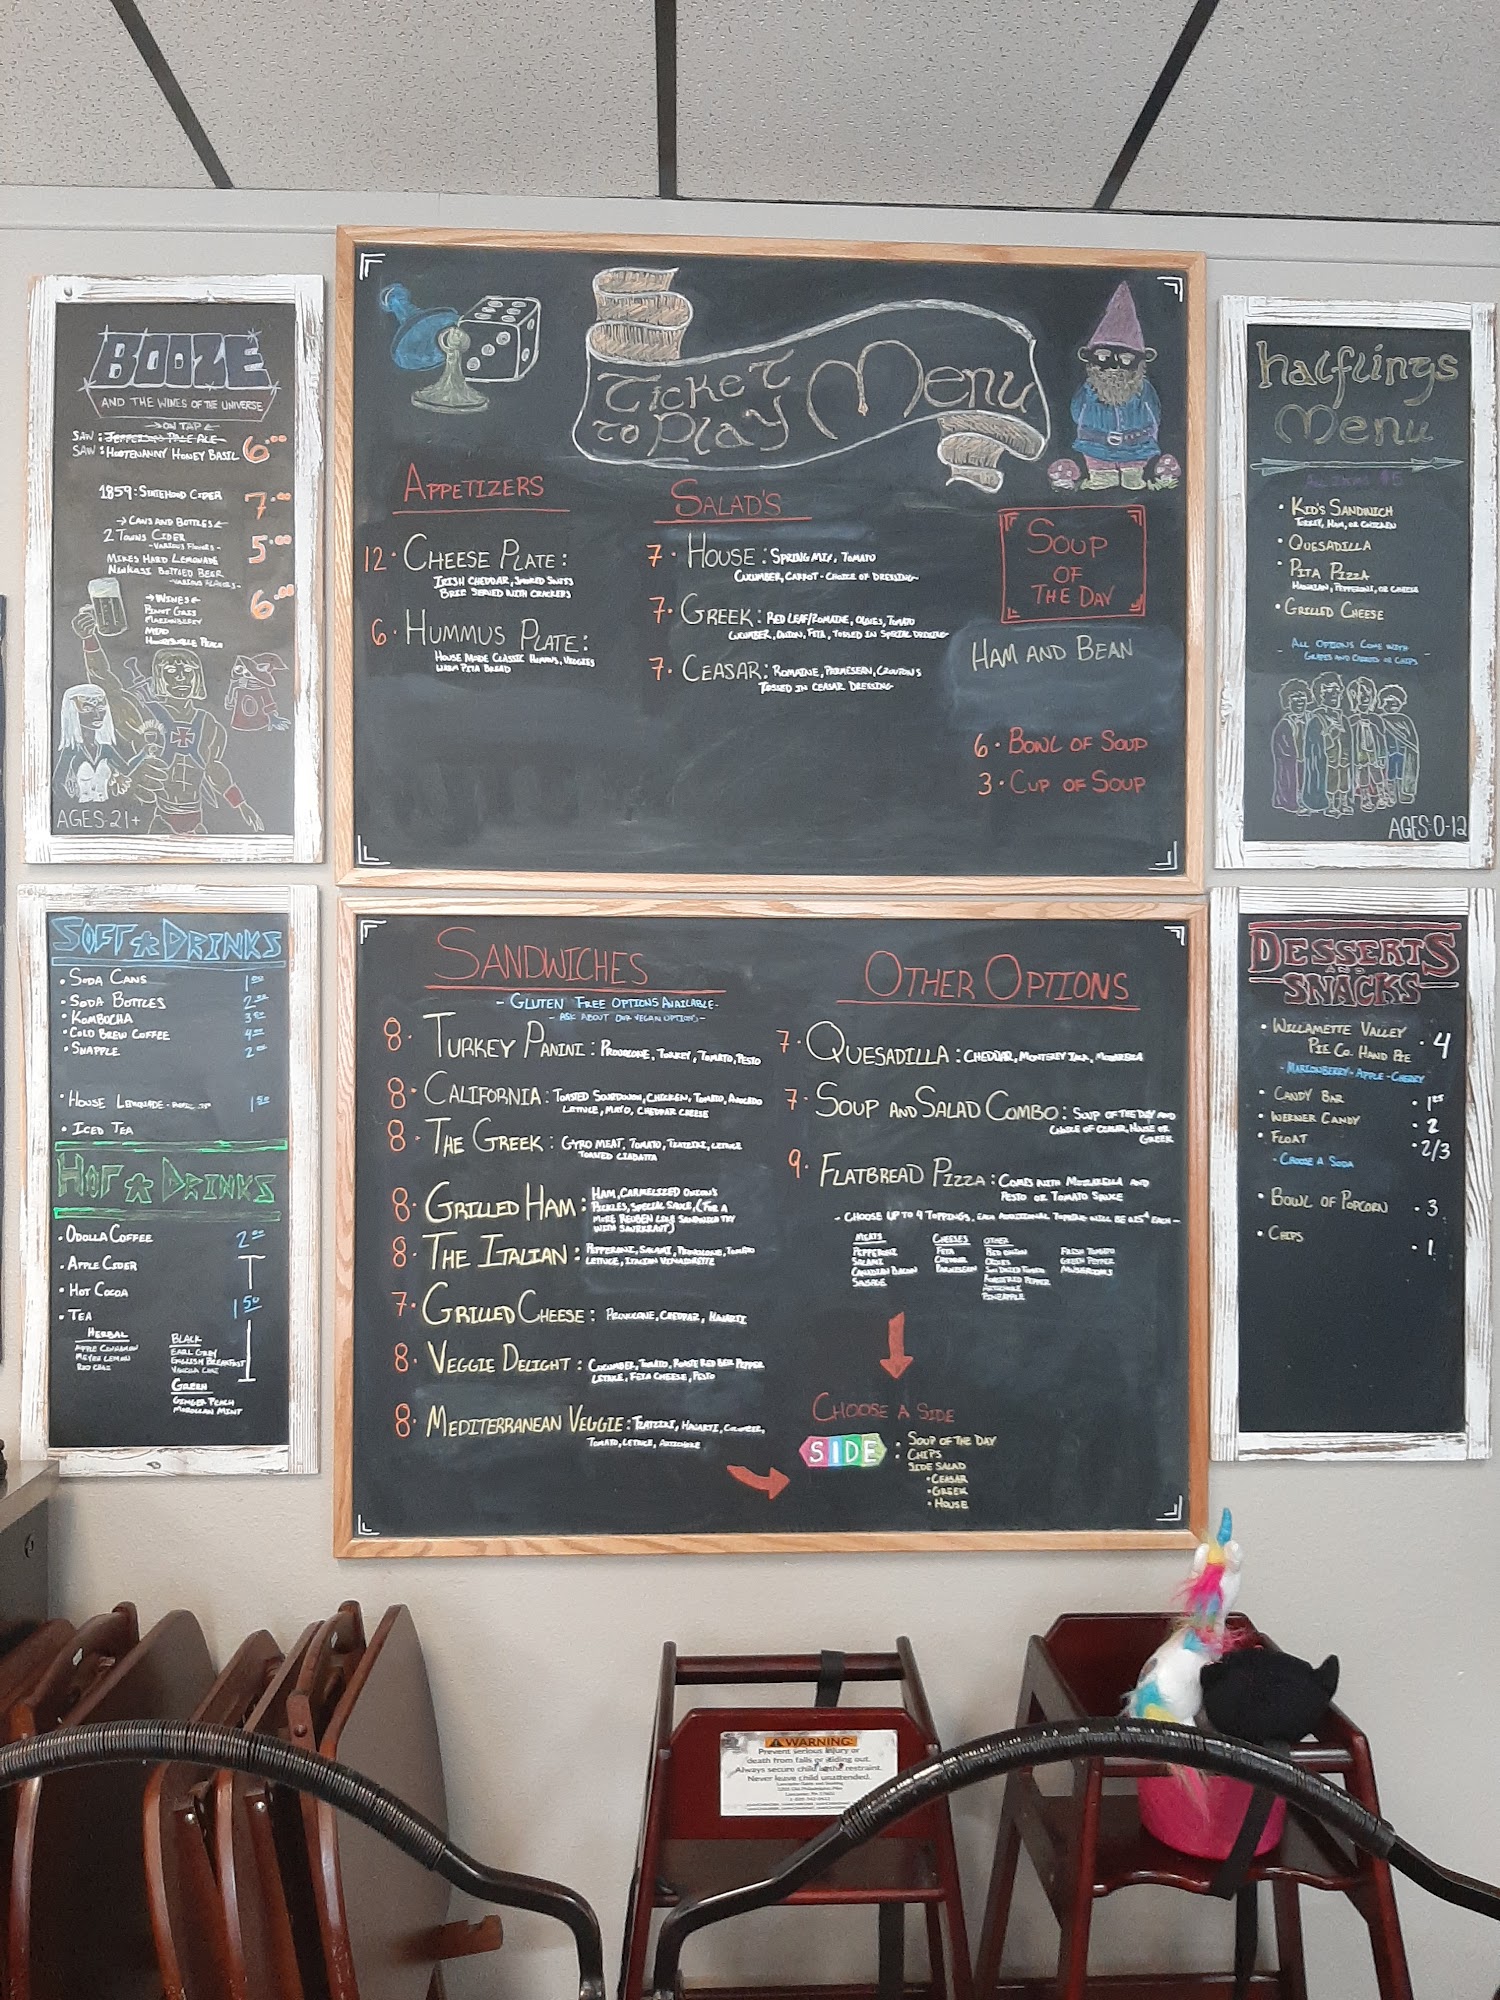 BOOZE
AND THE WINES OF THE UNIVERSE
ON TAP
SAW: JEFFERSON PALE ALE
SAW: HOOTENANNY HONEY BASIL 6.00
1859: STATEHOOD CIDER 7.00
CANS AND BOTTLES
2 TOWNS CIDER 5.00
-VARIOUS FLAVORS-
MIKES HARD LEMONADE
NINKASI BOTTLED BEER
-VARIOUS FLAVORS-
WINES 6.00
PINOT GRIS
MARIONBERRY
MEAD
HONEYSUCKLE PEACH
AGES 21+
TICKET TO PLAY MENU
APPETIZERS
12. CHEESE PLATE:
IRISH CHEDDAR, SMOKED SWISS
BRIE SERVED WITH CRACKERS
6. HUMMUS PLATE:
HOUSE MADE CLASSIC HUMMUS, VEGGIES
WARM PITA BREAD
SALAD'S
7. HOUSE: SPRING MIX, TOMATO
CUCUMBER, CARROT - CHOICE OF DRESSING
7. GREEK: RED LEAF/ROMAINE, OLIVES, TOMATO
CUCUMBER, ONION, FETA, TOSSED IN SPECIAL DRESSING
7. CEASAR: ROMAINE, PARMESEAN, CROUTONS
TOSSED IN CEASAR DRESSING
SOUP
OF
THE DAY
HAM AND BEAN
6. BOWL OF SOUP
3. CUP OF SOUP
halflings
Menu
ALL ITEMS $5
• KID'S SANDWICH
TURKEY, HAM, OR CHICKEN
• QUESADILLA
• PITA PIZZA
HAWAIIAN, PEPPERONI, OR CHEESE
• GRILLED CHEESE
ALL OPTIONS COME WITH
- GRAPES AND CARROTS OR CHIPS -
AGES: 0-12
SOFT DRINKS
• SODA CANS 1.00
• SODA BOTTLES
• KOMBOCHA
• COLD BREW COFFEE
• SNAPPLE
• HOUSE LEMONADE 1.50
• ICED TEA
HOT DRINKS
• ODOLLA COFFEE 2.00
• APPLE CIDER
• HOT COCOA
• TEA 1.50
HERBAL
APPLE CINNAMON
MEYER LEMON
RED CHAI
BLACK
EARL GREY
ENGLISH BREAKFAST
VANILLA CHAI
GREEN
GINGER PEACH
MOROCCAN MINT
SANDWICHES
- GLUTEN FREE OPTIONS AVAILABLE -
- ASK ABOUT OUR VEGAN OPTIONS -
8. TURKEY PANINI: PROVOLONE, TURKEY, TOMATO, PESTO
8. CALIFORNIA: TOASTED SOURDOUGH, CHICKEN, TOMATO, AVOCADO
LETTUCE, MAYO, CHEDDAR CHEESE
8. THE GREEK: GYRO MEAT, TOMATO, TZATZIKI, LETTUCE
TOASTED CIABATTA
8. GRILLED HAM: HAM, CARMELIZED ONION'S
PICKLES, SPECIAL SAUCE, (FOR A
MORE REUBEN LIKE SANDWICH TRY
WITH SAUERKRAUT)
8. THE ITALIAN: PEPPERONI, SALAMI, PROVOLONE, TOMATO
LETTUCE, ITALIAN VINAIGRETTE
7. GRILLED CHEESE: PROVOLONE, CHEDDAR, HAVARTI
8. VEGGIE DELIGHT: CUCUMBER, TOMATO, ROASTED RED BELL PEPPER
LETTUCE, FETA CHEESE, PESTO
8. MEDITERRANEAN VEGGIE: TZATZIKI, HAVARTI, CUCUMBER,
TOMATO, LETTUCE, ARTICHOKE
OTHER OPTIONS
7. QUESADILLA: CHEDDAR, MONTEREY JACK, MOZARELLA
7. SOUP AND SALAD COMBO: SOUP OF THE DAY AND
CHOICE OF CEASAR, HOUSE OR
GREEK
9. FLATBREAD PIZZA: COMES WITH MOZARELLA AND
PESTO OR TOMATO SAUCE
- CHOOSE UP TO 4 TOPPINGS, EACH ADDITIONAL TOPPING WILL BE EACH -
MEATS
PEPPERONI
SALAMI
CANADIAN BACON
SAUSAGE
CHEESES
FETA
CHEDDAR
PARMESEAN
OTHER
RED ONION
OLIVES
SUN DRIED TOMATO
ROASTED PEPPER
ARTICHOKE
PINEAPPLE
FRESH TOMATO
GREEN PEPPER
MUSHROOMS
CHOOSE A SIDE
SIDE : SOUP OF THE DAY
: CHIPS
SIDE SALAD
• CEASAR
• GREEK
• HOUSE
DESSERTS
AND
SNACKS
• WILLAMETTE VALLEY
PIE CO. HAND PIE • 4
- MARIONBERRY - APPLE - CHERRY
• CANDY BAR
• WERNER CANDY • 2
• FLOAT • 2/3
- CHOOSE A SODA
• BOWL OF POPCORN • 3
• CHIPS • 1
WARNING:
Prevent serious injury or
death from falls or sliding out.
Always secure child in the restraint.
Never leave child unattended.